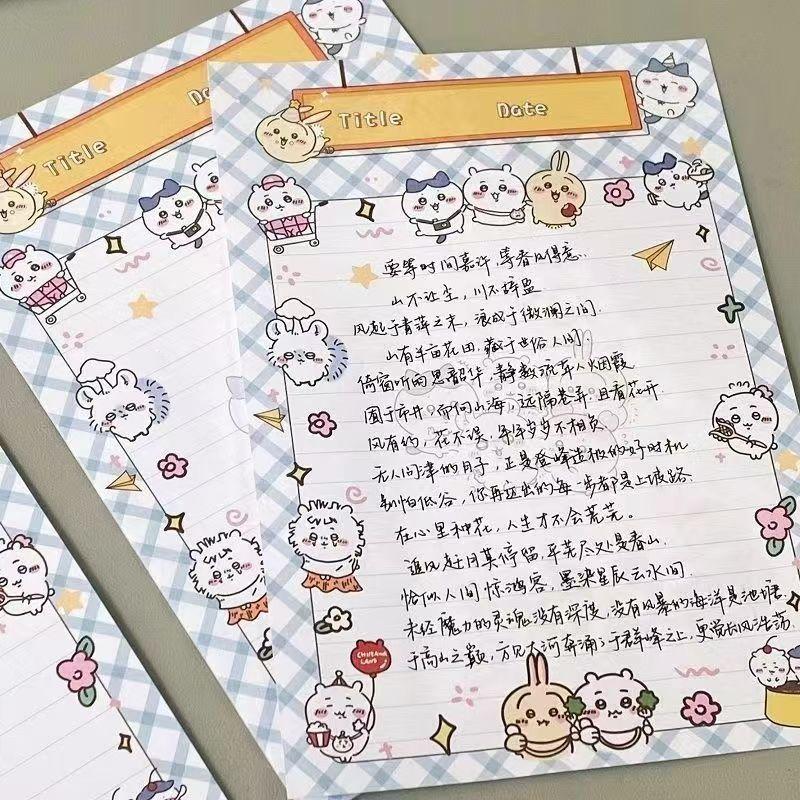 Title
Title Date
Date
要等时间嘉许,等春风得意.
山不让尘,川不辞盈
风起于青萍之末,浪成于微澜之间.
山有半亩花田,藏于世俗人间.
倚窗听雨思韶华,静数流年人烟霞
囿于市井,而向山海,远隔巷弄,且看花开.
风有约,花不误,年年岁岁不相负.
无人问津的日子,正是登峰造极的好时机
别怕低谷,你再迈出的每一步都是上坡路.
在心里种花,人生才不会荒芜。
追风赶月莫停留,平芜尽处是春山.
恰似人间惊鸿客,墨染星辰云水间.
未经魔力的灵魂没有深度,没有风暴的海洋是池塘.
于高山之巅,方见大河奔涌;于群峰之上,更觉长风浩荡.
CHIIKAWA LAND